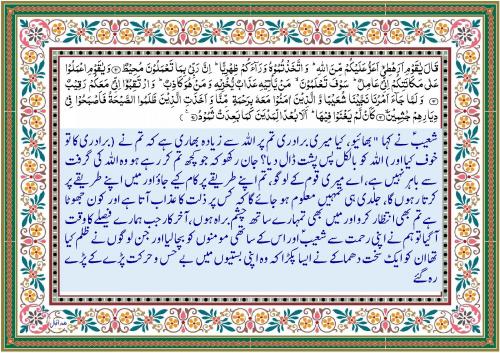 قَالَ يٰقَوْمِ اَرَهْطِيْۤ اَعَزُّ عَلَيْكُمْ مِّنَ اللّٰهِ ؕ وَاتَّخَذْتُمُوْهُ وَرَآءَكُمْ ظِهْرِيًّا ؕ اِنَّ رَبِّيْ بِمَا تَعْمَلُوْنَ مُحِيْطٌ وَيٰقَوْمِ اعْمَلُوْا
عَلٰى مَكَانَتِكُمْ اِنِّيْ عَامِلٌ ؕ سَوْفَ تَعْلَمُوْنَ ۙ مَنْ يَّاْتِيْهِ عَذَابٌ يُّخْزِيْهِ وَمَنْ هُوَ كَاذِبٌ ؕ وَارْتَقِبُوْۤا اِنِّيْ مَعَكُمْ رَقِيْبٌ
وَلَمَّا جَآءَ اَمْرُنَا نَجَّيْنَا شُعَيْبًا وَّالَّذِيْنَ اٰمَنُوْا مَعَهٗ بِرَحْمَةٍ مِّنَّا وَاَخَذَتِ الَّذِيْنَ ظَلَمُوا الصَّيْحَةُ فَاَصْبَحُوْا فِيْ
دِيَارِهِمْ جٰثِمِيْنَ كَاَنْ لَّمْ يَغْنَوْا فِيْهَا ؕ اَلَا بُعْدًا لِّمَدْيَنَ كَمَا بَعِدَتْ ثَمُوْدُ
شعیبؑ نے کہا "بھائیو، کیا میری برادری تم پر اللہ سے زیادہ بھاری ہے کہ تم نے (برادری کا تو
خوف کیا اور) اللہ کو بالکل پس پشت ڈال دیا؟ جان رکھو کہ جو کچھ تم کر رہے ہو وہ اللہ کی گرفت
سے باہر نہیں ہے، اے میری قوم کے لوگو، تم اپنے طریقے پر کام کیے جاؤ اور میں اپنے طریقے پر
کرتا رہوں گا، جلدی ہی تمہیں معلوم ہو جائے گا کہ کس پر ذلت کا عذاب آتا ہے اور کون جھوٹا
ہے تم بھی انتظار کرو اور میں بھی تمہارے ساتھ چشم براہ ہوں، آخر کار جب ہمارے فیصلے کا وقت
آ گیا تو ہم نے اپنی رحمت سے شعیبؑ اور اس کے ساتھی مومنوں کو بچا لیا اور جن لوگوں نے ظلم کیا
تھا ان کو ایک سخت دھماکے نے ایسا پکڑا کہ وہ اپنی بستیوں میں بے حس و حرکت پڑے کے پڑے
رہ گئے